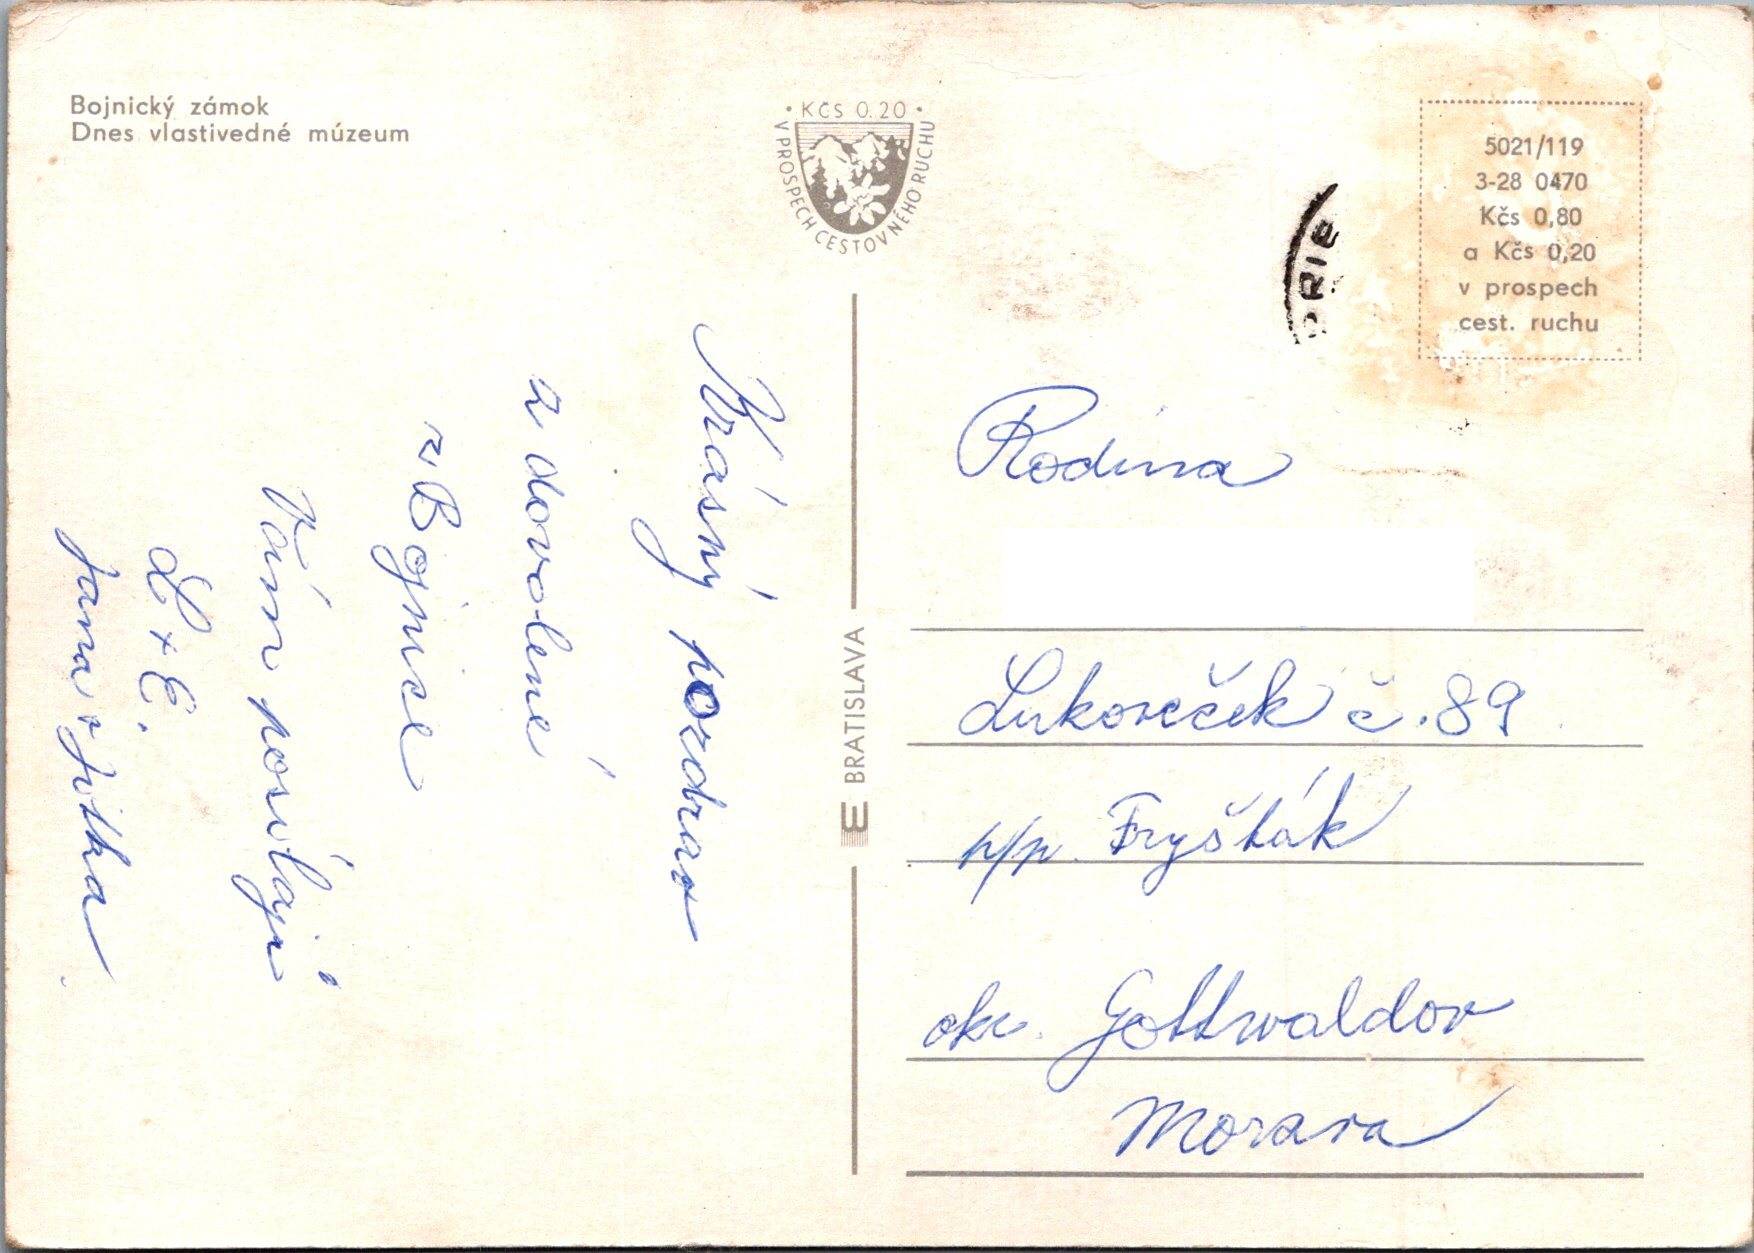 Bojnický zámok
Dnes vlastivedné múzeum
· KČS 0.20 ·
V PROSPECH CESTOVNÉHO RUCHU
5021/119
3-28 0470
Kčs 0,80
a Kčs 0,20
v prospech
cest. ruchu
Krásný pozdrav
z dovolené
z Bojnice
Vám posílají
L + E.
Jana + Jitka
BRATISLAVA
Rodina
Lukoveček č. 89
p/p. Fryšták
okr. Gottwaldov
Morava